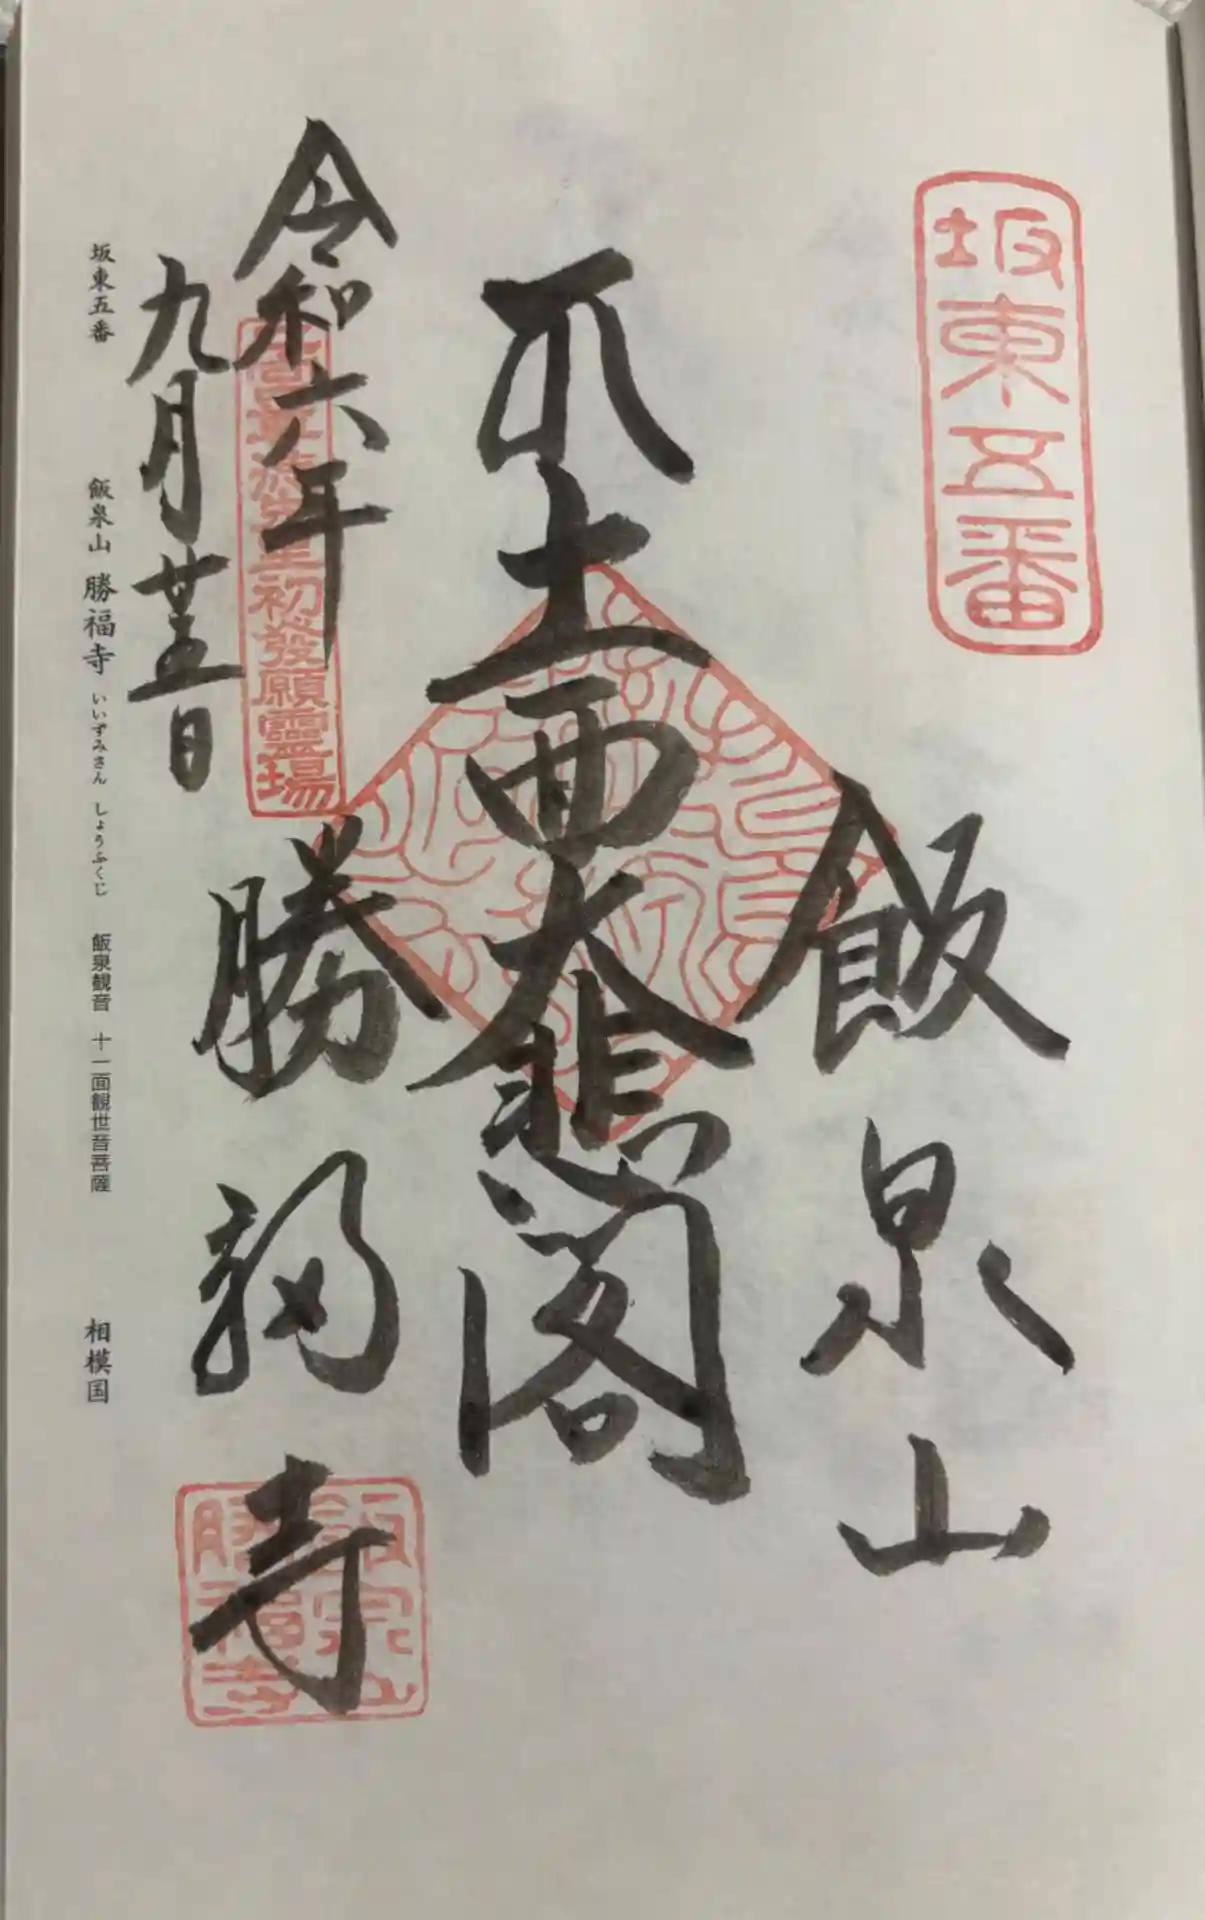 坂東五番
飯泉山
十一面大悲閣
令和六年
九月廿五日
初發願靈場
勝福寺
飯泉山
勝福寺
坂東五番 飯泉山 勝福寺 いいずみさん しょうふくじ 飯泉観音 十一面観世音菩薩 相模国